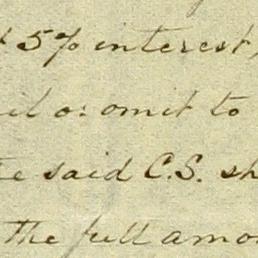 5% interest,
omit to
said C.S. sh
the full amo